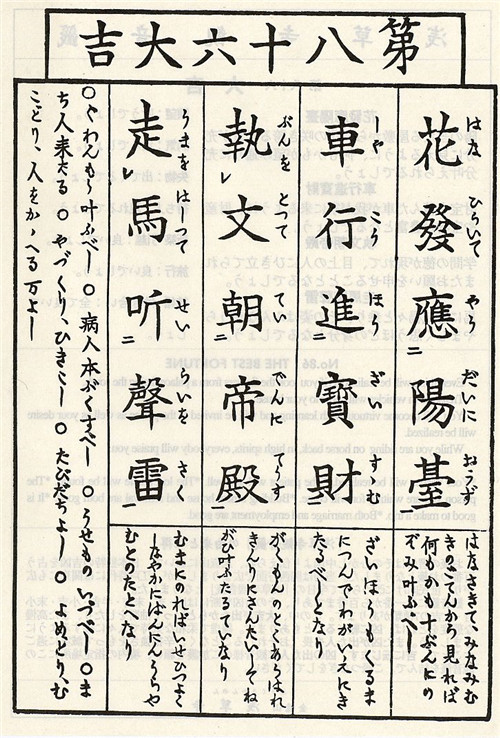 第八十六大吉
花發應二陽臺一
はな ひらいて やう だいに おうず
はなさきてみなみむ
きのてんから見れば
何もかも十ぶんにの
ぞみ叶ふべし
車行進二寶財一
しや こう ほう ざ すゝむ
ざいほうもくるま
につんでわがいえにき
たるべしとなり
執レ文朝二帝殿一
ぶんを とつて てい でんに てうす
がくもんのとくあらはれ
きんりにさんだいしてね
がひ叶ふたるていなり
走レ馬听二聲雷一
うまを はしつて せい らいを
むまにのればいせひつよく
しなやかにばんにんうらや
むとのたとへなり
○ぐわんもう叶ふべし ○病人本ぶくすべし ○うせものいづべし ○ま
ち人来たる ○やづくり、ひきこし ○たびだちよし ○よめどり、む
ことり、人をかゝへる万よし